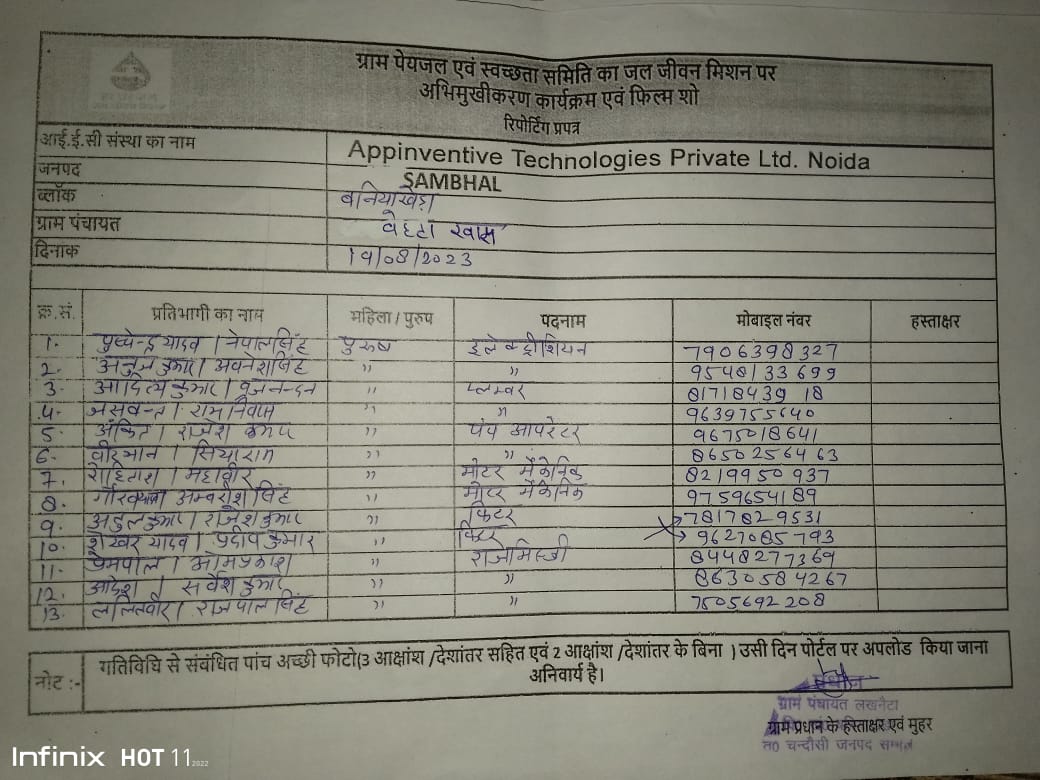 ग्राम पेयजल एवं स्वच्छता समिति का जल जीवन मिशन पर
अभिमुखीकरण कार्यक्रम एवं फिल्म शो
रिपोर्टिंग प्रपत्र
आई.ई.सी संस्था का नाम Appinventive Technologies Private Ltd. Noida
जनपद SAMBHAL
ब्लॉक बनियाखेड़ा
ग्राम पंचायत वेहटा खास
दिनाक 19/08/2023
क्र.सं. प्रतिभागी का नाम महिला / पुरुप पदनाम मोबाइल नंवर हस्ताक्षर
1. पुष्पेन्द्र यादव / नेपाल सिंह पुरुष इलेक्ट्रीशियन 7906398327
2. अतुल कुमार / अवनेश सिंह " " 9548133699
3. आदित्य कुमार / बृजनन्दन " प्लम्बर 8171843918
4. जसवन्त / राम निवास " " 9639755640
5. अंकित / राजेश कुमार " पंप आपरेटर 9675018641
6. वीरभान / सियाराम " " 8650256463
7. रोहिताश / महावीर " मोटर मैकेनिक 8219950937
8. अम्बरीश सिंह " मोटर मैकेनिक 9759654189
9. अतुल कुमार / राजेश कुमार " फिटर 7817829531
10. शेखर यादव / प्रदीप कुमार फिटर 9627085793
11. प्रेमपाल / ओमप्रकाश " राजमिस्त्री 8448277369
12. आदेश / सर्वेश कुमार " " 8630584267
13. ललितवीर / राजपाल सिंह " " 7505692208
नोट :- गतिविधि से संवंधित पांच अच्छी फोटो(3 आक्षांश /देशांतर सहित एवं 2 आक्षांश /देशांतर के बिना ) उसी दिन पोर्टल पर अपलोड किया जाना
अनिवार्य है।
ग्राम पंचायत लखनेटा
ग्राम प्रधान के हस्ताक्षर एवं मुहर
त0 चन्दौसी जनपद सम्भल
Infinix HOT 11 2022